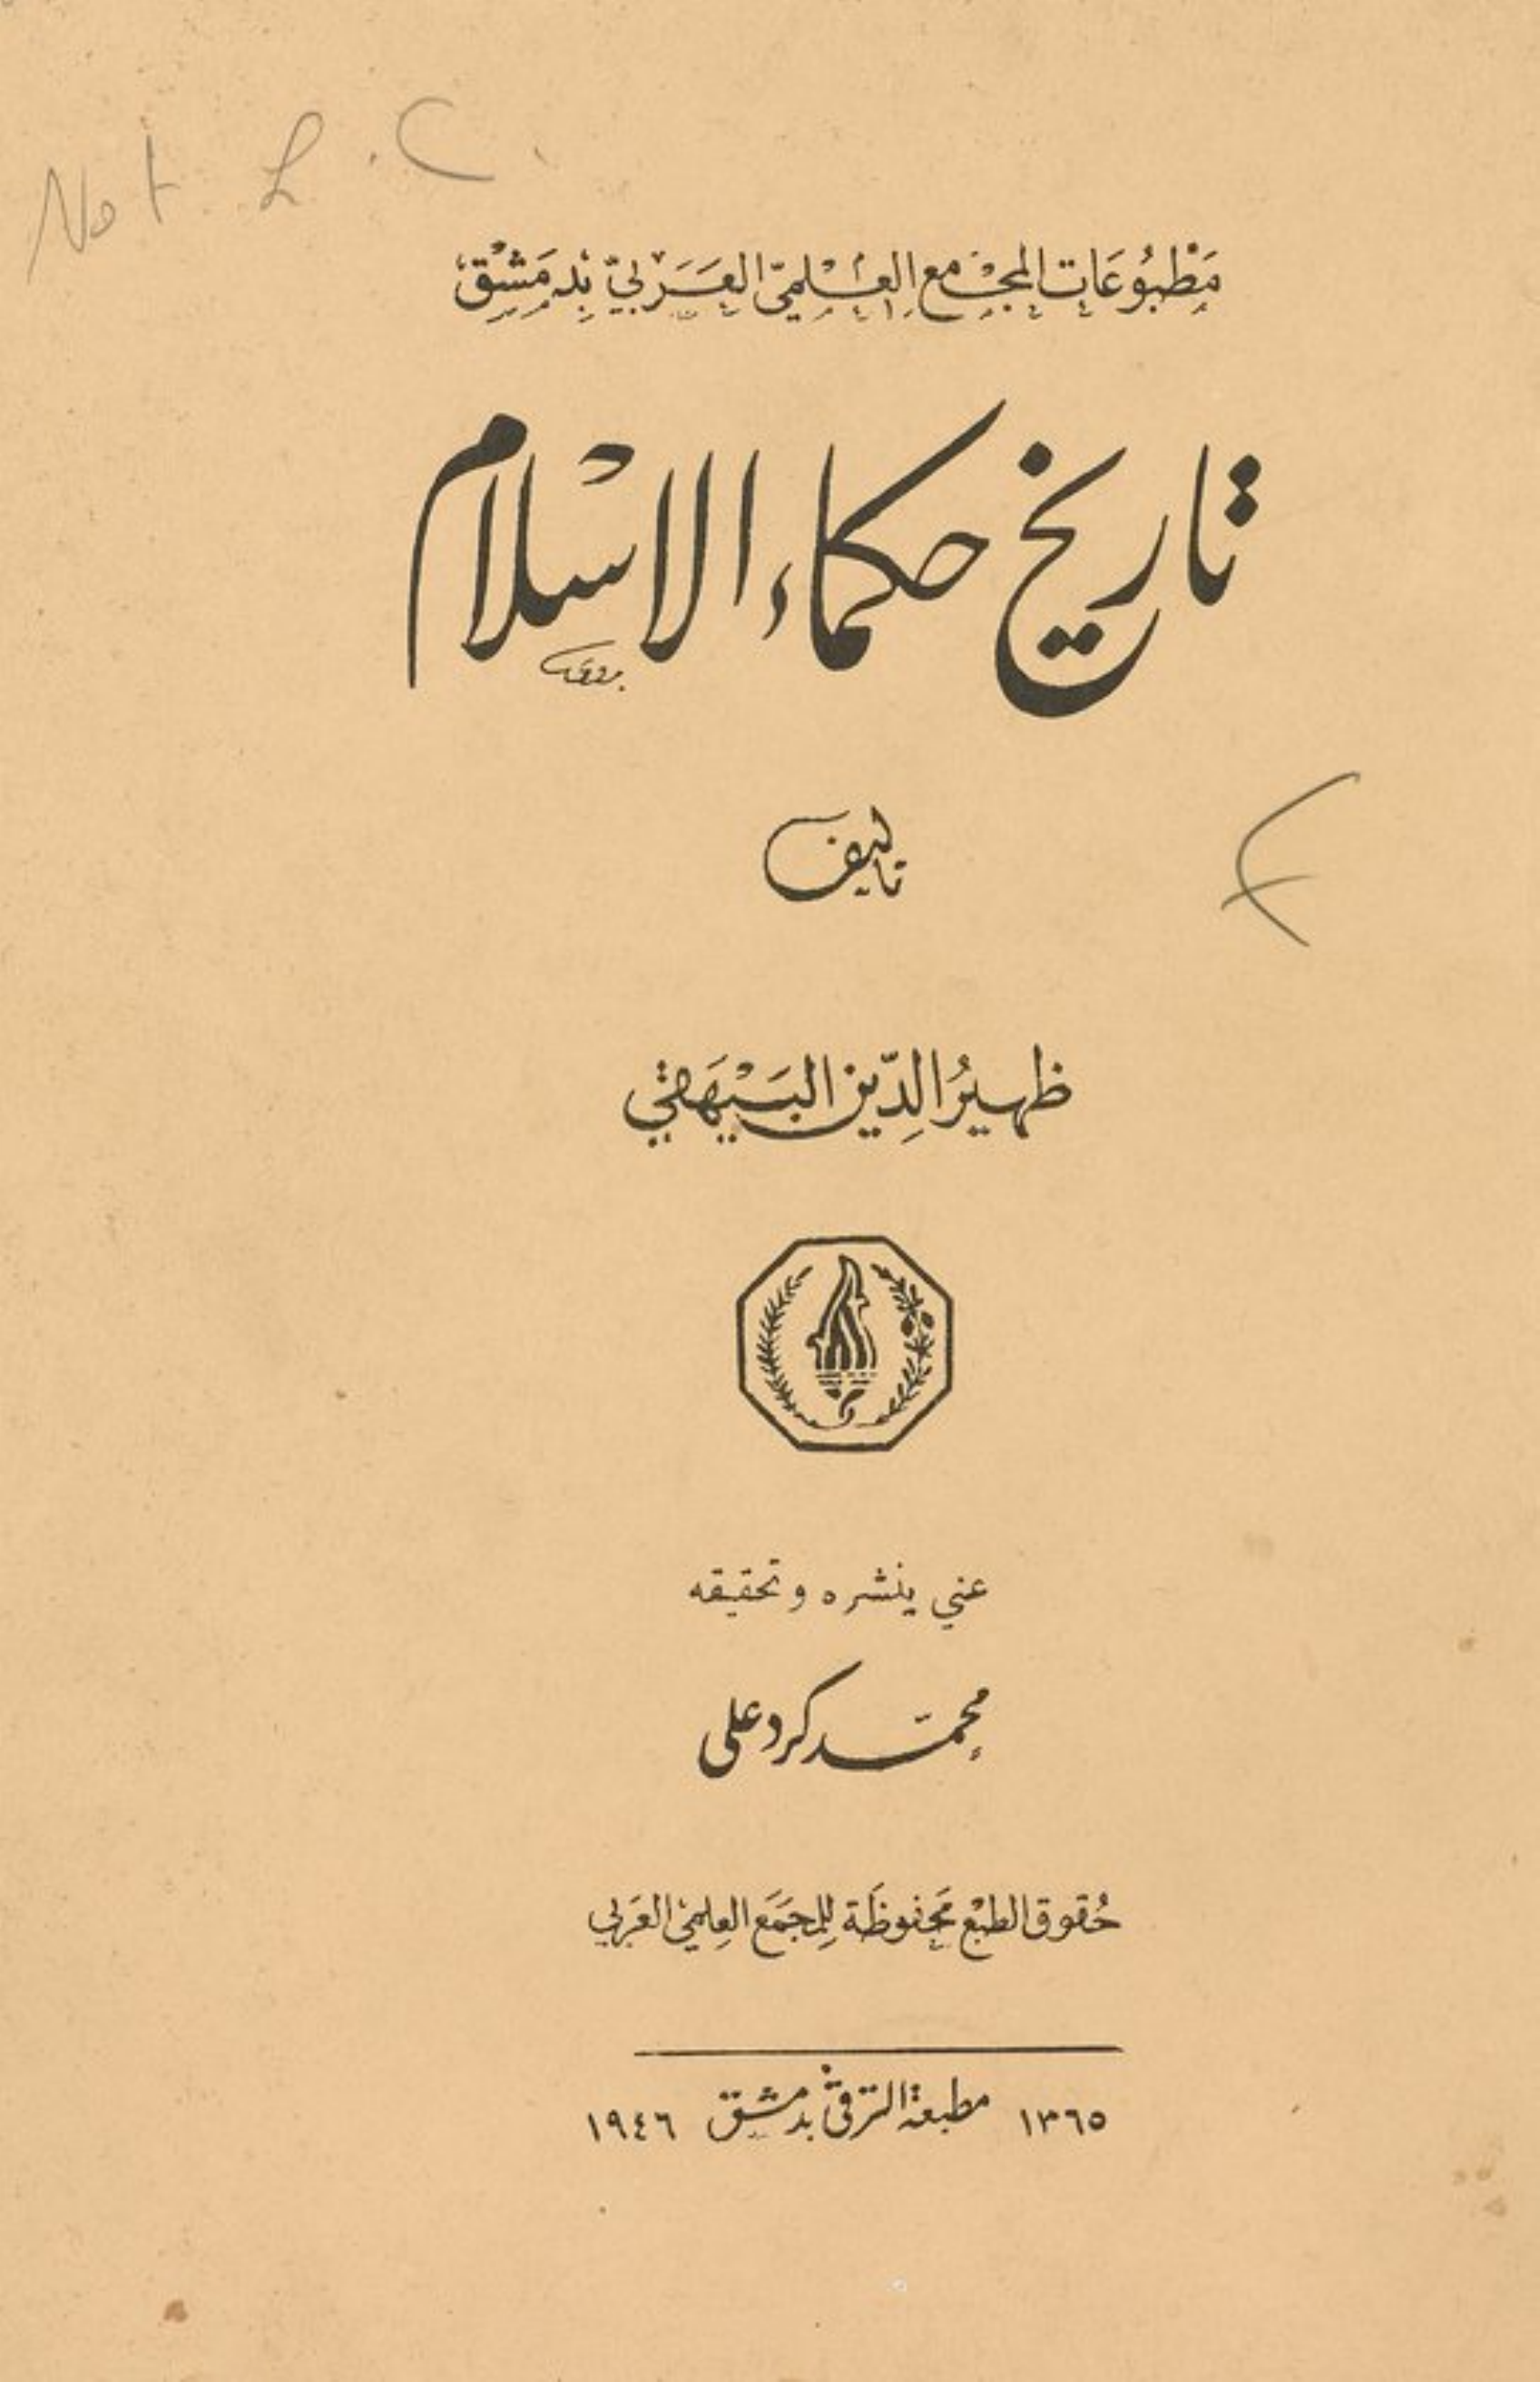 Not L.C.
مَطْبُوعَات المجْمع العِلميّ العَرَبيّ بِدمَشْق
تاريخ حكماء الاسْلام
تأليف
ظهيرُ الدِّين البَيْهَقي
عني بنشره وتحقيقه
محمّد كرد علي
حُقوق الطبْع مَحفوظَة لِلمجمَع العِلمي العَرَبي
١٣٦٥ مطبعة الترقي بدمشق ١٩٤٦